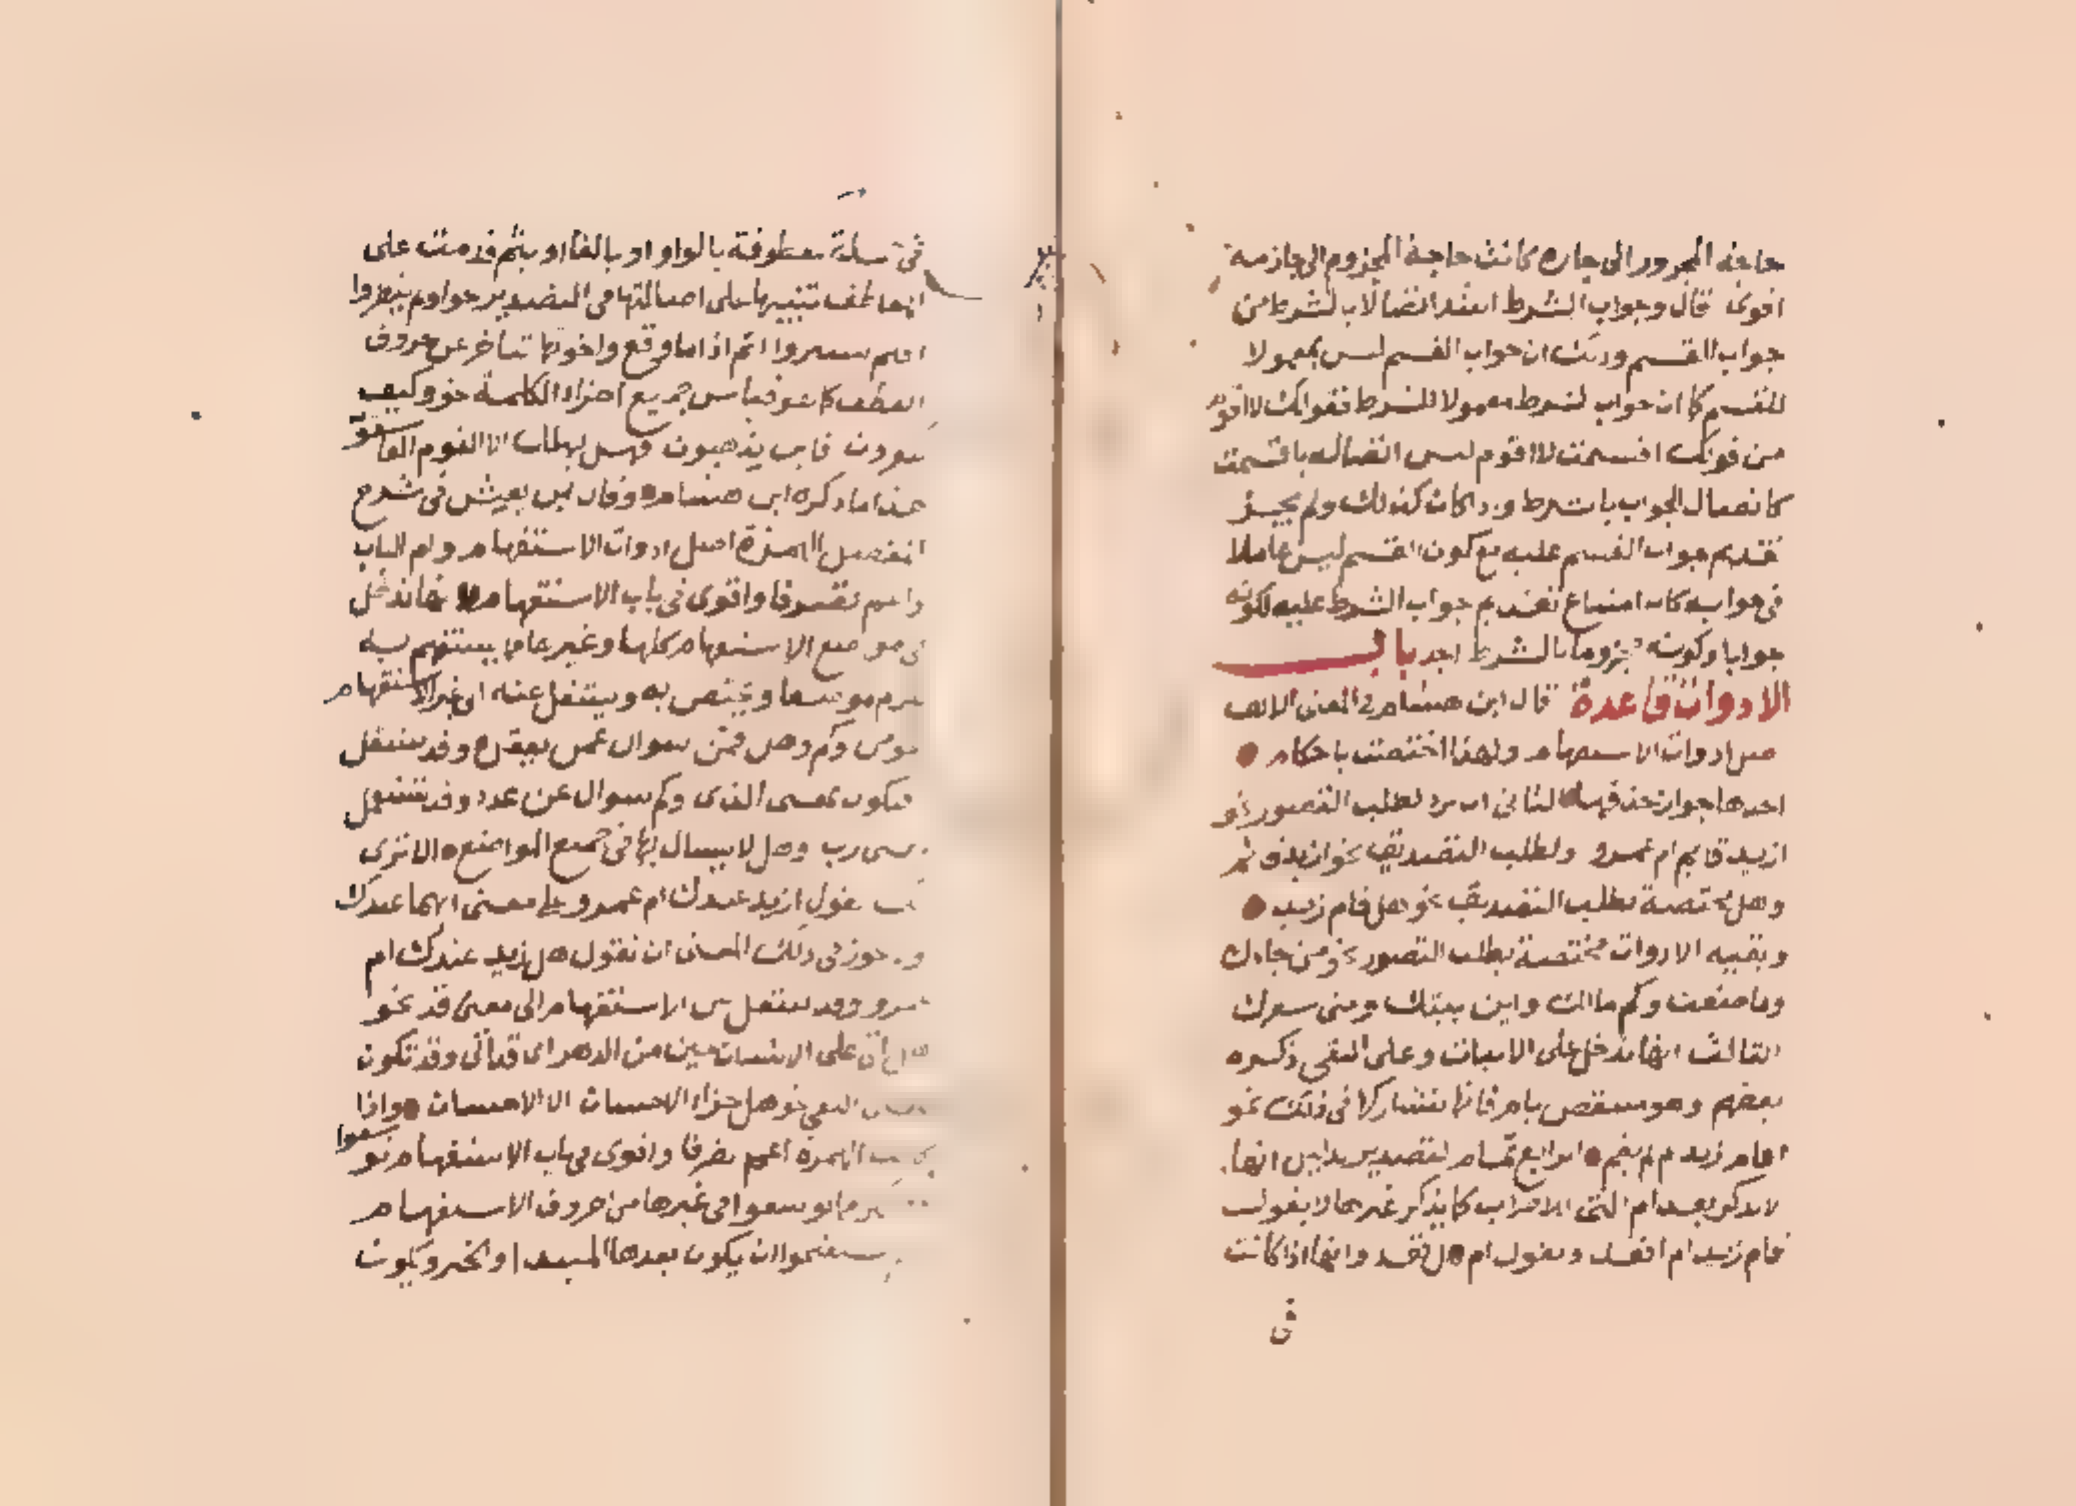 حاجة المجرور الى جاره كانت حاجة المجزوم الى جازمه
اقوى قال وجواب الشرط اشد اتصالا بالشرط من
جواب القسم وذلك ان جواب القسم ليس بمعمولا
للقسم كما ان جواب الشرط معمولا للشرط فقولك لا اقوم
من قولك اقسمت لا اقوم ليس اتصاله باقسمت
كاتصال الجواب بالشرط واذا كان كذلك ولم يجز
تقديم جواب القسم عليه مع كون القسم ليس عاملا
في جوابه كان امتناع تقديم جواب الشرط عليه لكونه
جوابا وكونه مجزوما بالشرط اجدر باب
الادوات قاعدة قال ابن هشام في المغني الالف
اصل ادوات الاستفهام ولهذا اختصت باحكام
احدها جواز حذفها الثاني انها ترد لطلب التصور نحو
ازيد قايم ام عمرو ولطلب التصديق نحو ازيد قايم
وهل مختصة بطلب التصديق نحو هل قام زيد
وبقية الادوات مختصة بطلب التصور نحو من جاءك
وما صنعت وكم مالك واين بيتك ومتى سفرك
الثالث انها تدخل على الاثبات وعلى النفي ذكره
بعضهم وهو منتقض بام فانها تشاركها في ذلك نحو
اقام زيد ام لم يقم الرابع تمام التصدير بدليل انها
لا تذكر بعد ام التي للاضراب كما يذكر غيرها لا يقول
اقام زيد ام اقعد ويقول ام هل قعد وانها اذا كانت
في
في جملة معطوفة بالواو او بالفا او بثم قدمت على
العاطف تنبيها على اصالتها في التصدير نحو اولم ينظروا
افلم يسيروا اثم اذا ما وقع واخوتها تتاخر عن حروف
العطف كما هو قياس جميع اجزاء الكلمة نحو وكيف
تكفرون فاين يذهبون فهل يهلك الا القوم الفاسقون
هذا ما ذكره ابن هشام وقال ابن يعيش في شرح
المفصل الهمزة اصل ادوات الاستفهام وام الباب
واعم تصرفا واقوى في باب الاستفهام لانها تدخل
في مواضع الاستفهام كلها وغيرها مما يستفهم به
يلزم موضعا ويختص به وينتقل عنه الى غير الاستفهام
نحو من وكم وهل فمن سوال عمن يعقل وقد تنتقل
فتكون بمعنى الذي وكم سوال عن عدد وقد تستعمل
بمعنى رب وهل لا يسال بها في جميع المواضع الا ترى
انك تقول ازيد عندك ام عمرو على معنى ايهما عندك
ولا يجوز في ذلك المعنى ان تقول هل زيد عندك ام
عمرو وقد تنتقل من الاستفهام الى معنى قد نحو
هل اتى على الانسان حين من الدهر اي قد اتى وقد تكون
بمعنى النفي نحو هل جزاء الاحسان الا الاحسان واذا
كانت الهمزة اعم تصرفا واقوى في باب الاستفهام توسعوا
فيها اكثر مما توسعوا في غيرها من حروف الاستفهام
فلم يستقبحوا ان يكون بعدها المبتدا والخبر ويكون